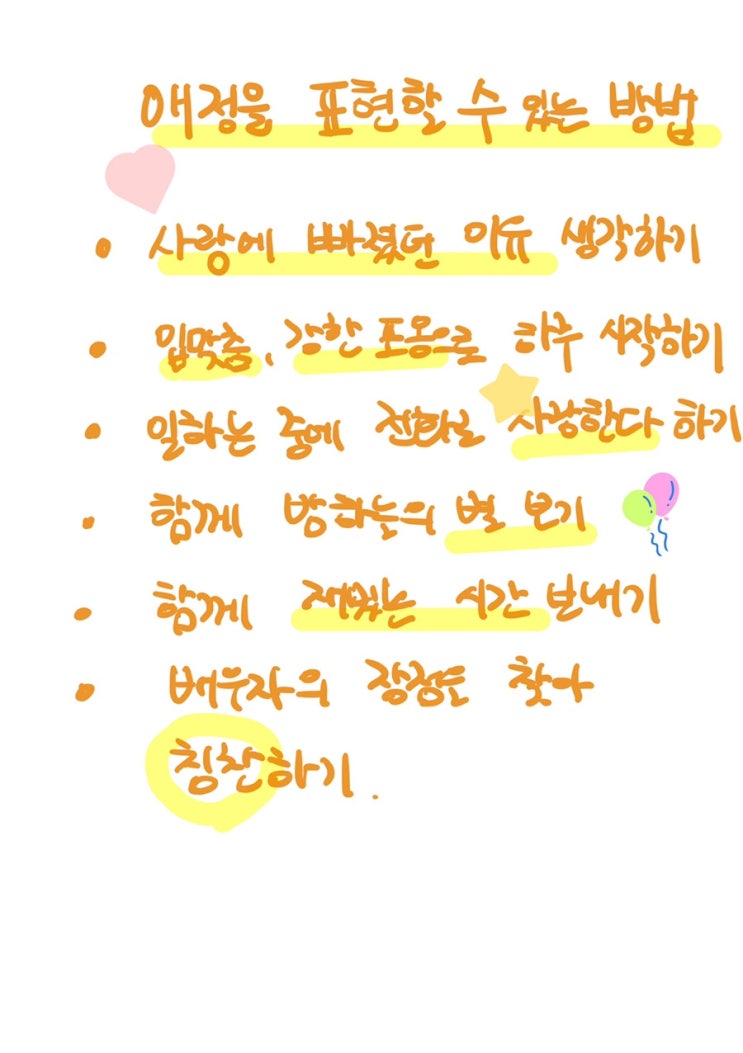 애정을 표현할 수 있는 방법
• 사랑에 빠졌던 이유 생각하기
• 입맞춤, 강한 포옹으로 하루 시작하기
• 일하는 중에 전화로 사랑한다 하기
• 함께 밤하늘의 별 보기
• 함께 재밌는 시간 보내기
• 배우자의 장점도 찾아
칭찬하기.